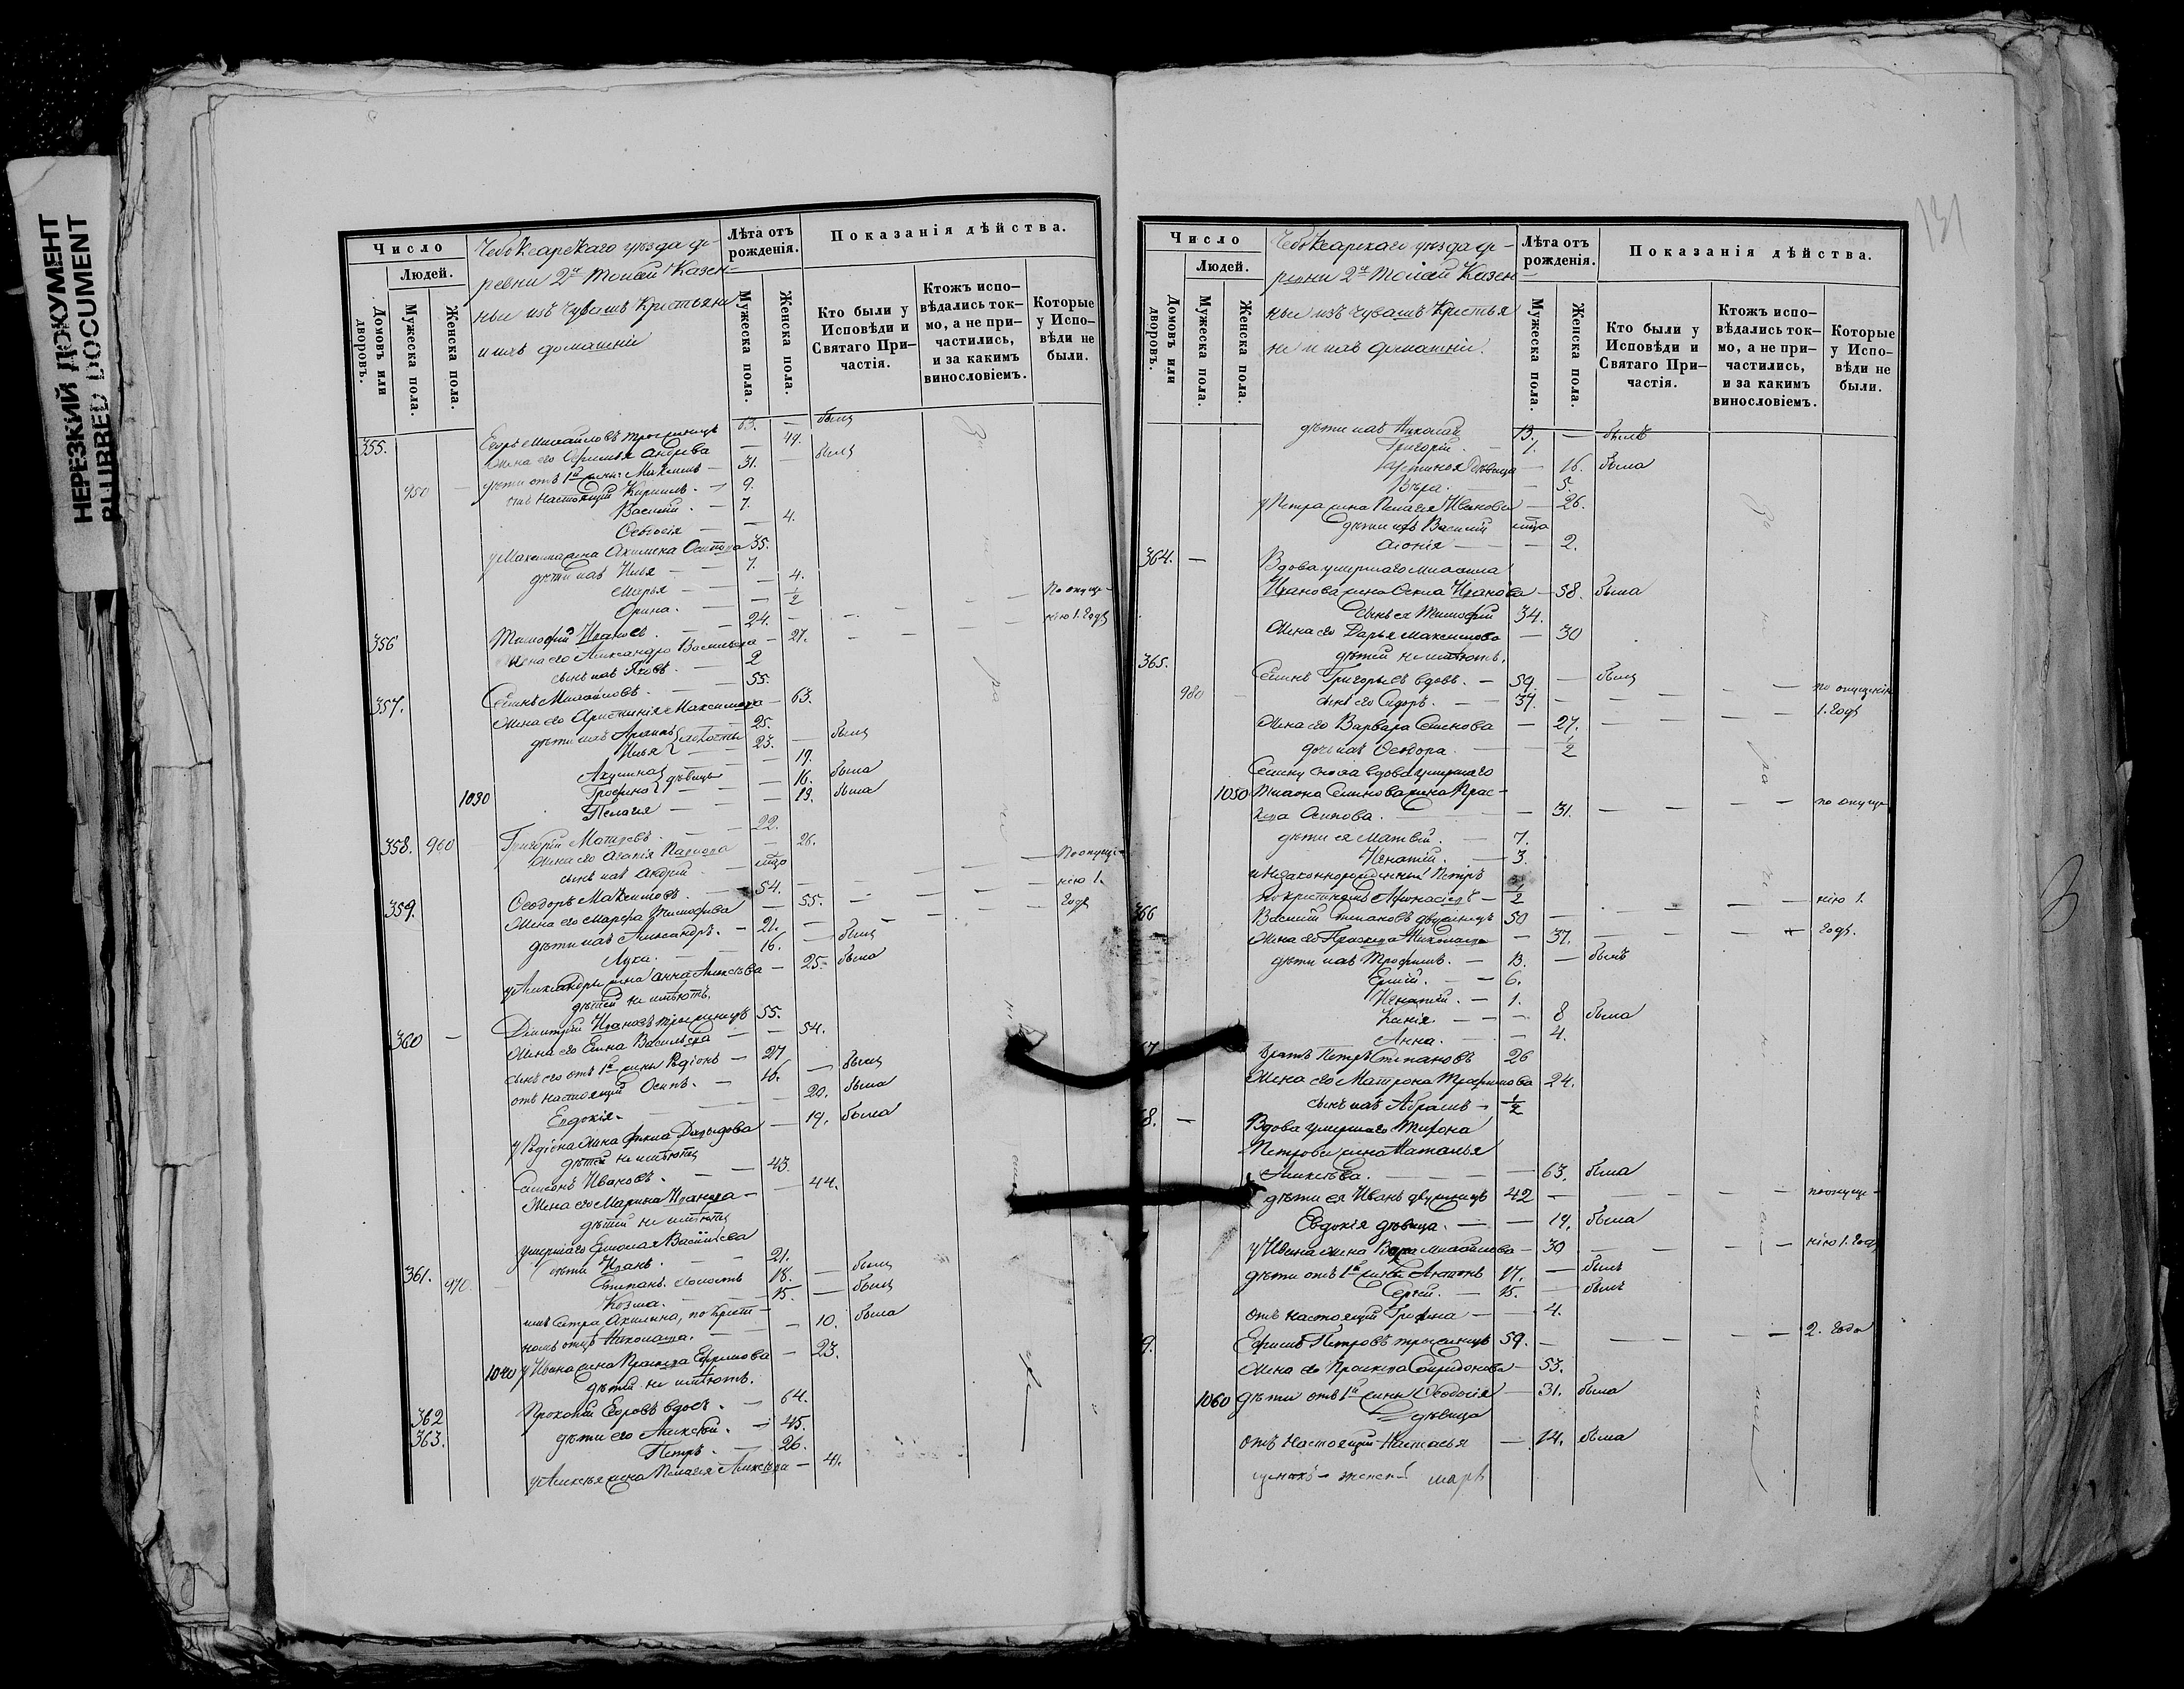 НЕРЕЗКИЙ ДОКУМЕНТ
BLURRED DOCUMENT
Число
Людей.
Домовъ или дворовъ.
Мужеска пола.
Женска пола.
Чебоксарскаго уѣзда де-
ревни 2й Тоисей Казен-
ные изъ чувашъ Крестьяне
и ихъ домашніе
Лѣта отъ рожденія.
Мужеска пола.
Женска пола.
Показанія дѣйства.
Кто были у Исповѣди и Святаго При-частія.
Ктожъ испо-вѣдались ток-мо, а не при-частились, и за какимъ винословіемъ.
Которые у Испо-вѣди не были.
355. Егоръ Михайловъ троеженецъ 63. — былъ
Жена его Андреева — 49.
950 — дѣти отъ 1й жены Максимъ — 31. — былъ
отъ настоящей Кириллъ. — 9.
Василій. — 7.
Федосія — — 4.
у Максима жена Акилина Осипова 35.
дѣти ихъ Илья — 7.
Марья — — 4.
Орина. — — 1/2
356 Тимофей Ивановъ. — 24. — — — По опуще-
Жена его Александра Васильева — 27. — — — нію 1. годъ
сынъ ихъ Яковъ. — 2
357. Семенъ Михайловъ. — 55.
Жена его Максимова — 63.
дѣти ихъ холосты 25.
Илья — 23. — былъ
Акулина — 19.
1030 девицы — 16. была
Пелагія — — 13. была
358. 960 Григорій Матвеевъ. — 22.
Жена его Агафія Павлова — 26.
сынъ ихъ Андрей
359. Феодоръ Максимовъ. — 54. — — — По опуще-
Жена его Марфа Тимофеева — 55. — — — нію 1.
дѣти ихъ Александръ. — 21. — — — годъ
Лука. — 16. — былъ
у Александра жена Анна Алексѣева — 25. была
дѣтей не имѣютъ.
360 — Дмитрій Ивановъ троеженецъ 55.
Жена его Елена Васильева — 54.
сынъ его отъ 1й жены Родіонъ — 27
отъ настоящей Осипъ. — 16. — былъ
Евдокія. — — 20. была
у Родіона жена Фекла Давыдова — 19. была
дѣтей не имѣютъ
Самсонъ Ивановъ. — 43.
Жена его Марина Иванова — 44.
дѣтей не имѣютъ
умершаго Ермолая Васильева
361. дѣти Иванъ. — 21.
970. Степанъ. холостъ 18. — былъ
Козма. — 15. — былъ
ихъ сестра Акилина, по крест-
номъ отцѣ Николаева. — — 10. была
1040 у Ивана жена Праскева Ефремова — 23.
дѣтей не имѣютъ.
362 Прокопій Егоровъ вдовъ. — 64.
363. дѣти его Алексѣй. — 45.
Петръ. — 26.
у Алексѣя жена Пелагія Алексѣева — 41.
131
Число
Людей.
Домовъ или дворовъ.
Мужеска пола.
Женска пола.
Чебоксарскаго уѣзда де-
ревни 2й Тоисей Казен-
ные изъ чувашъ Крестья
не и ихъ домашніе.
Лѣта отъ рожденія.
Мужеска пола.
Женска пола.
Показанія дѣйства.
Кто были у Исповѣди и Святаго При-частія.
Ктожъ испо-вѣдались ток-мо, а не при-частились, и за какимъ винословіемъ.
Которые у Испо-вѣди не были.
дѣти ихъ Николай 13. — былъ
Григорій. — 1.
Устинья девица — 16. была
Вѣра. — 5.
у Петра жена Пелагія Иванова — 26.
дѣти ихъ Василій
— 2.
364. — Вдова умершаго Михаила
Иванова жена Фекла Иванова — 58. была
сынъ ея Тимофей 34.
Жена его Дарья Максимова — 30
дѣтей не имѣютъ.
365. Семенъ Григорьевъ вдовъ. — 59. — былъ
980 сынъ его Сидоръ. — 37. — — — по опущенію
Жена его Варвара Семенова — 27. — — — 1. годъ
дочь ихъ Феодора. — 1/2
Семену сноха вдова умершаго
1050 Семенова жена Прас-
кева Осипова. — 31. — — — по опуще
дѣти ея Матвѣй. — 7.
Игнатій. — 3.
и незаконнорожденный Петръ
по крестномъ — 1/2
366 Василій Степановъ двуженецъ 50 — — — нію 1.
Жена его Праскева Николаева — 37. — — годъ.
дѣти ихъ Трофимъ. — 13. — былъ
— 6.
Игнатій. — 1.
— 8 была
Анна. — 4.
братъ Петръ Степановъ 26
Жена его Матрона Трофимова 24.
сынъ ихъ Абрамъ — 1/2
Вдова умершаго
Петрова жена Наталья
Алексѣева. — 63. была
дѣти ея Иванъ двуженецъ 42 — — — по опуще-
Евдокія девица. — — 19. была
у Ивана жена Михайлова — 30 — — — нію 1. годъ
дѣти отъ 1й жены Антонъ 17. — былъ
Сергѣй. — 15. — былъ
отъ настоящей — 4.
Ефимъ Петровъ троеженецъ 59. — — — 2. года
Жена его Праскева Спиридонова — 53.
1060 дѣти отъ 1й жены Феодосія — 31. была
девица
отъ настоящей Настасья — 14. была